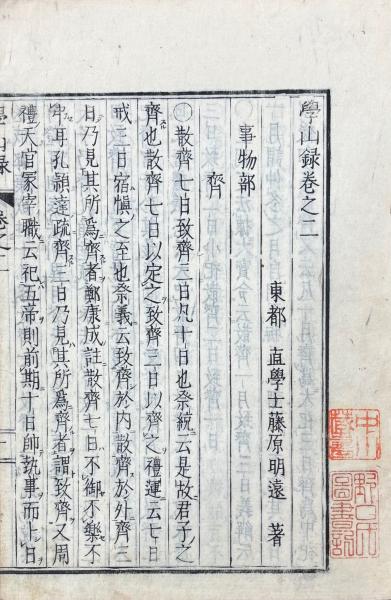 學山録卷之二
東都 直學士藤原明遠 著
事物部
齊
散齊七日致齊三日凡十日也祭統云是故君子之
齊也散齊七日以定之致齊三日以齊之禮運云七日
戒三日宿愼之至也祭義云致齊於内散齊於外齊三
日乃見其所爲齊者鄭康成註散齊七日不御不樂不
弔耳孔頴達疏齊三日乃見其所爲齊者謂致齊又周
禮天官冢宰職云祀五帝則前期十日帥執事而卜日
學山録 卷之二